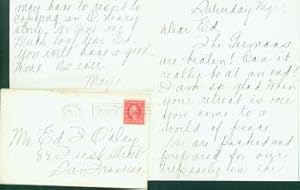 may have to resort to
an O'Leary
story. So give my
much love, Ed.
You will have a good
time. As ever
Marj
Saturday Night
Dear Ed,
The Germans
are beaten! Can it
really be at an end?
I am so glad when
your retreat is over
you come to a
world of peace
We are packed and
prepared for our
Mr Ed F O'Day
First Street
San Francisco